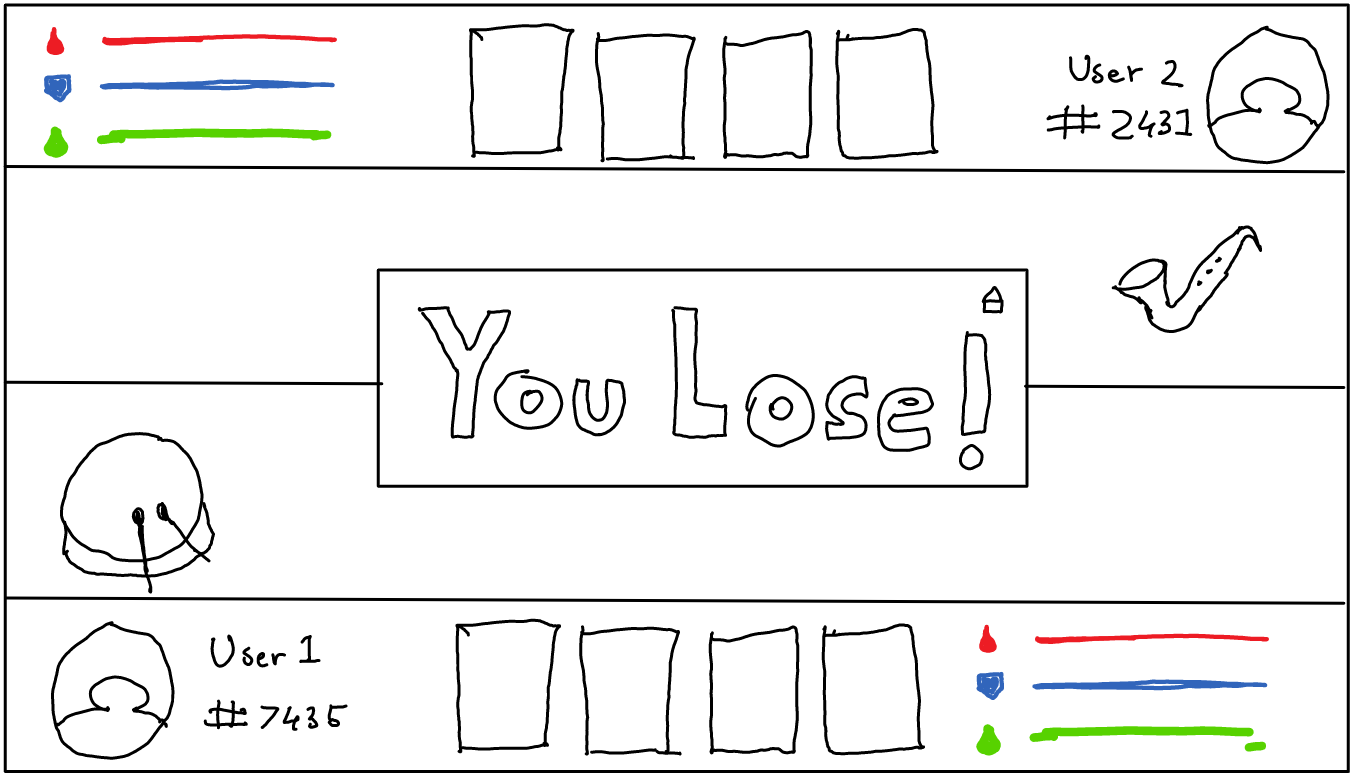 User 2
#2431
You Lose!
User 1
#7435